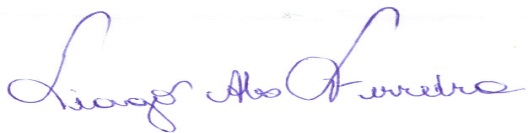 Tiago Alves Ferreira